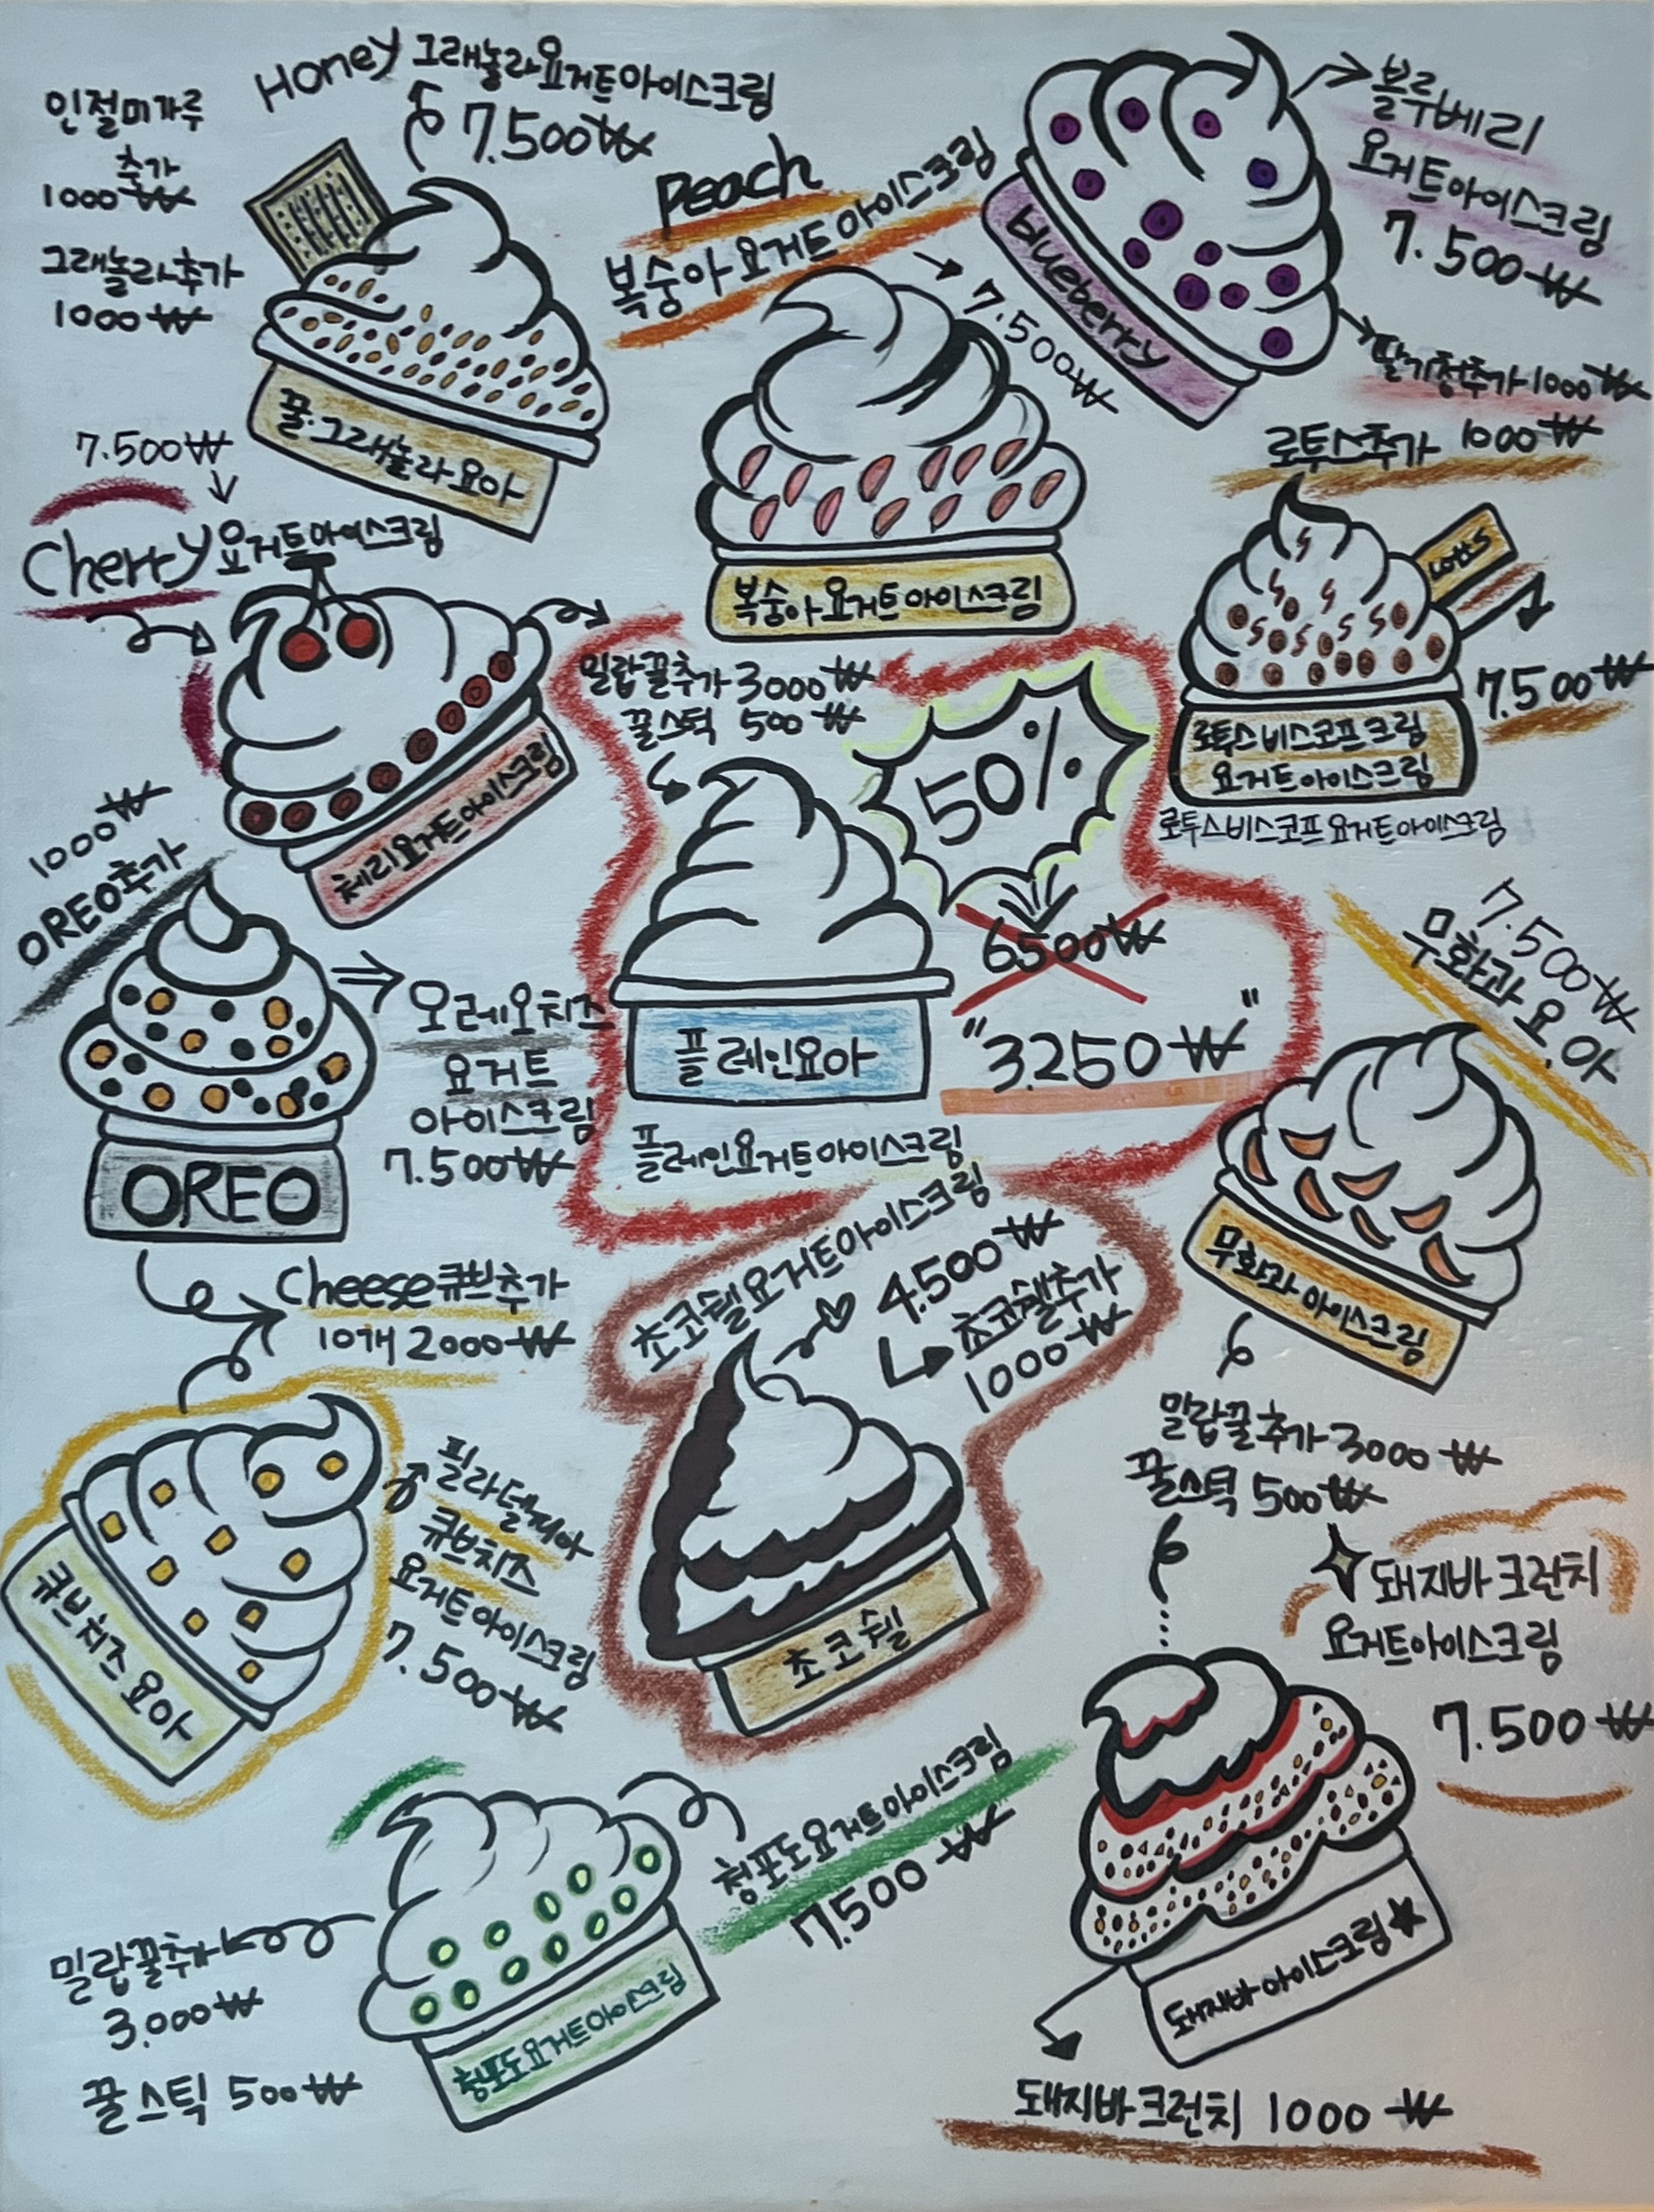 인절미가루
추가
1000₩
그래놀라추가
1000₩
Honey 그래놀라요거트아이스크림
7.500₩
꿀.그래놀라요아
Peach
복숭아요거트아이스크림
7.500₩
복숭아요거트아이스크림
blueberry
블루베리
요거트아이스크림
7.500₩
딸기청추가 1000₩
7.500₩
Cherry요거트아이스크림
체리요거트아이스크림
로투스추가 1000₩
Lotus
7.500₩
로투스비스코프크림
요거트아이스크림
로투스비스코프요거트아이스크림
밀랍꿀추가 3000₩
꿀스틱 500₩
50%
6500₩
"3.250₩"
플레인요아
플레인요거트아이스크림
1000₩
OREO추가
오레오치즈
요거트
아이스크림
7.500₩
OREO
7.500₩
무화과요.아
무화과아이스크림
밀랍꿀추가 3000₩
꿀스틱 500₩
Cheese큐브추가
10개 2000₩
필라델피아
큐브치즈
요거트아이스크림
7.500₩
큐브치즈요아
초코쉘요거트아이스크림
4.500₩
초코쉘추가
1000₩
초코쉘
돼지바크런치
요거트아이스크림
7.500₩
돼지바아이스크림
돼지바크런치 1000₩
청포도요거트아이스크림
7.500₩
청포도요거트아이스크림
밀랍꿀추가
3.000₩
꿀스틱 500₩